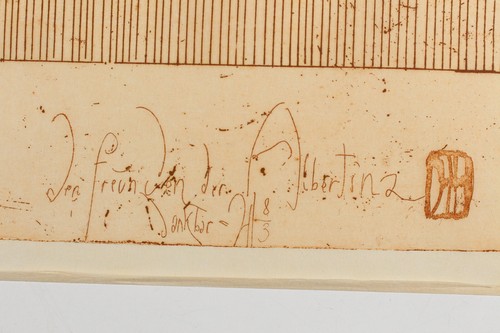 Den Freunden der Albertina
Dankbar